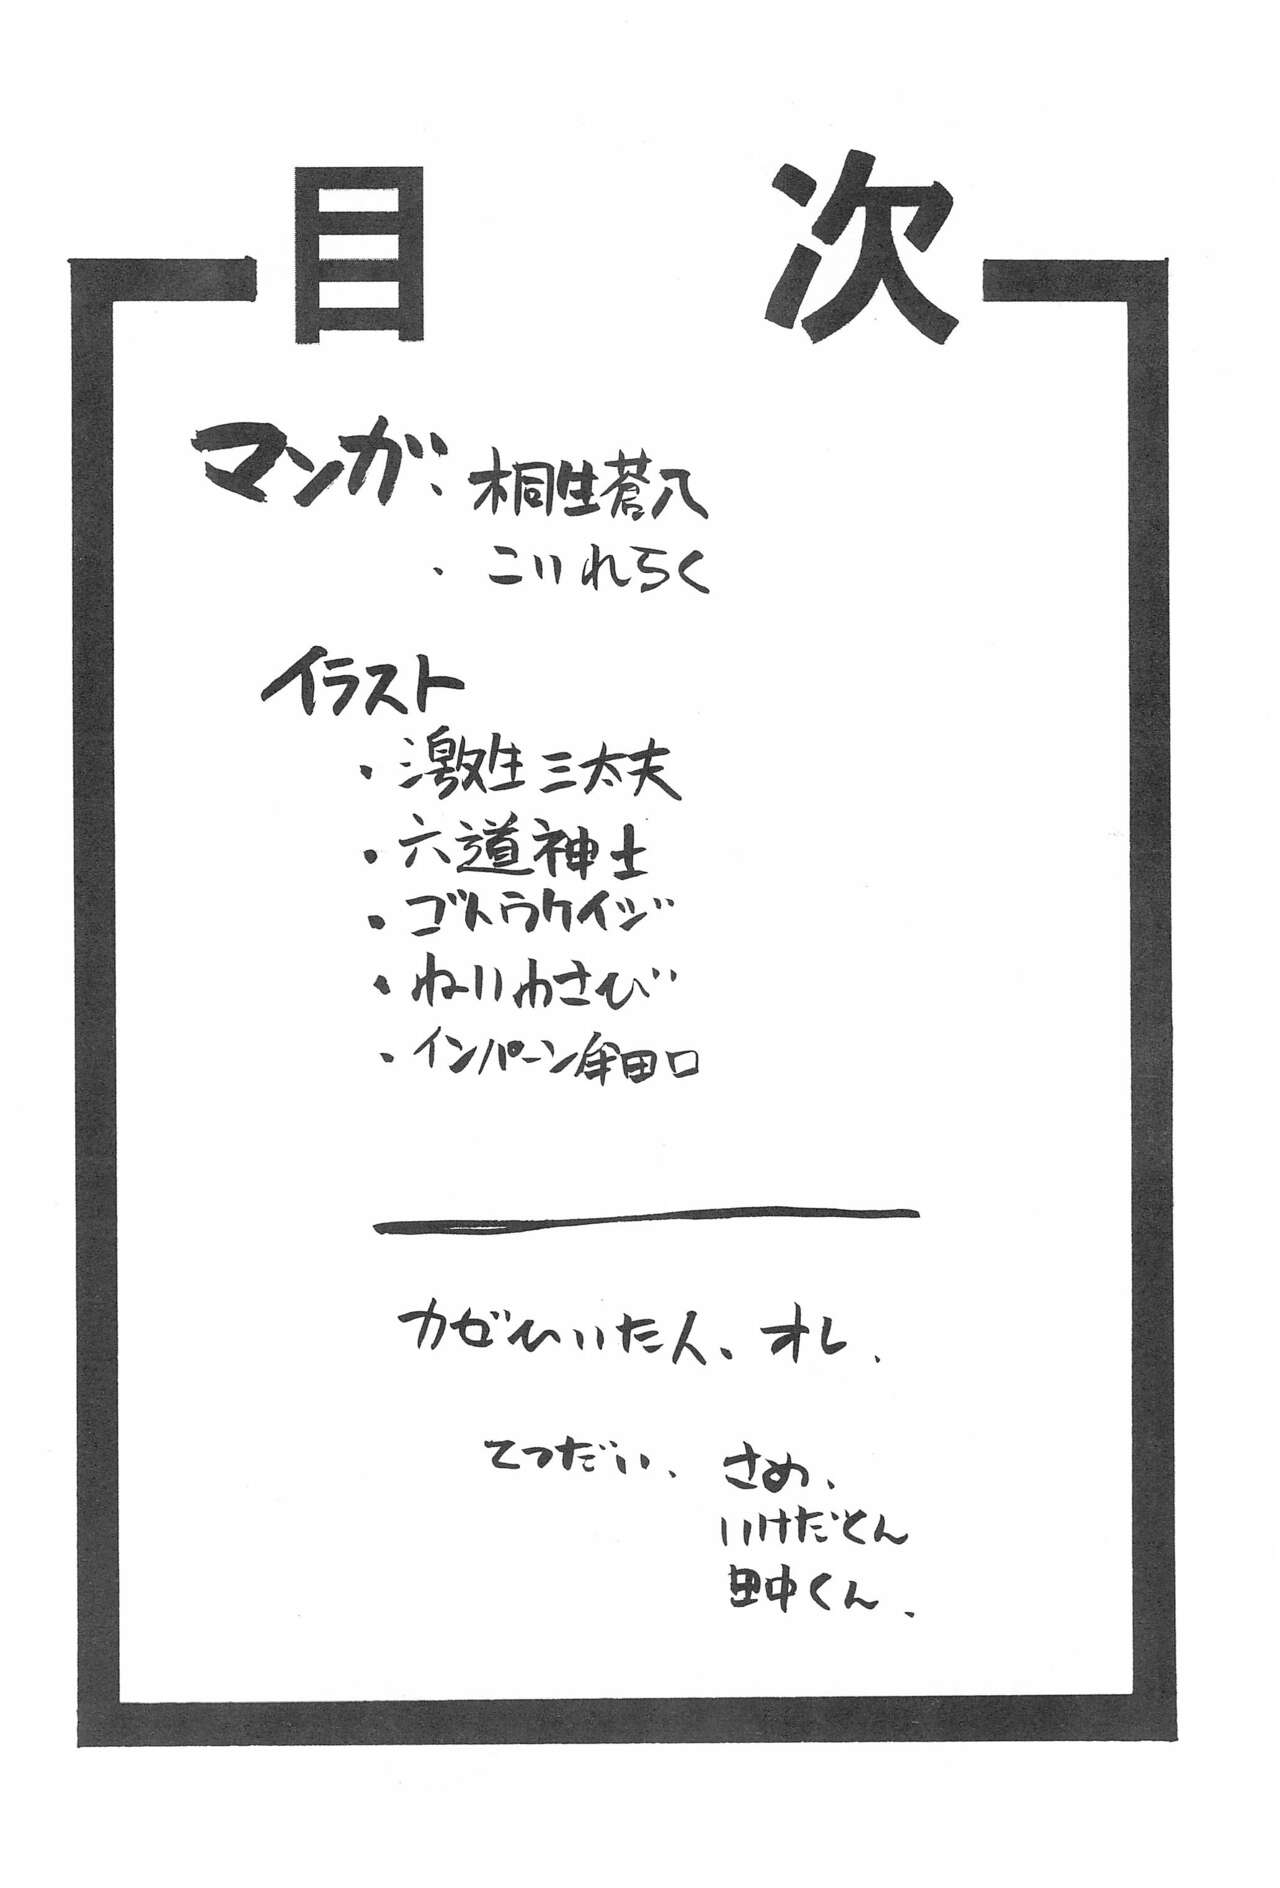 目次
マンガ・桐生蒼八
・こいれらく
イラスト
・激生三太夫
・六道神士
・ゴトウケイジ
・ねりわさび
・インパーン牟田口
カゼひいた人、オレ.
てつだい、さめ、
いけだくん
田中くん.